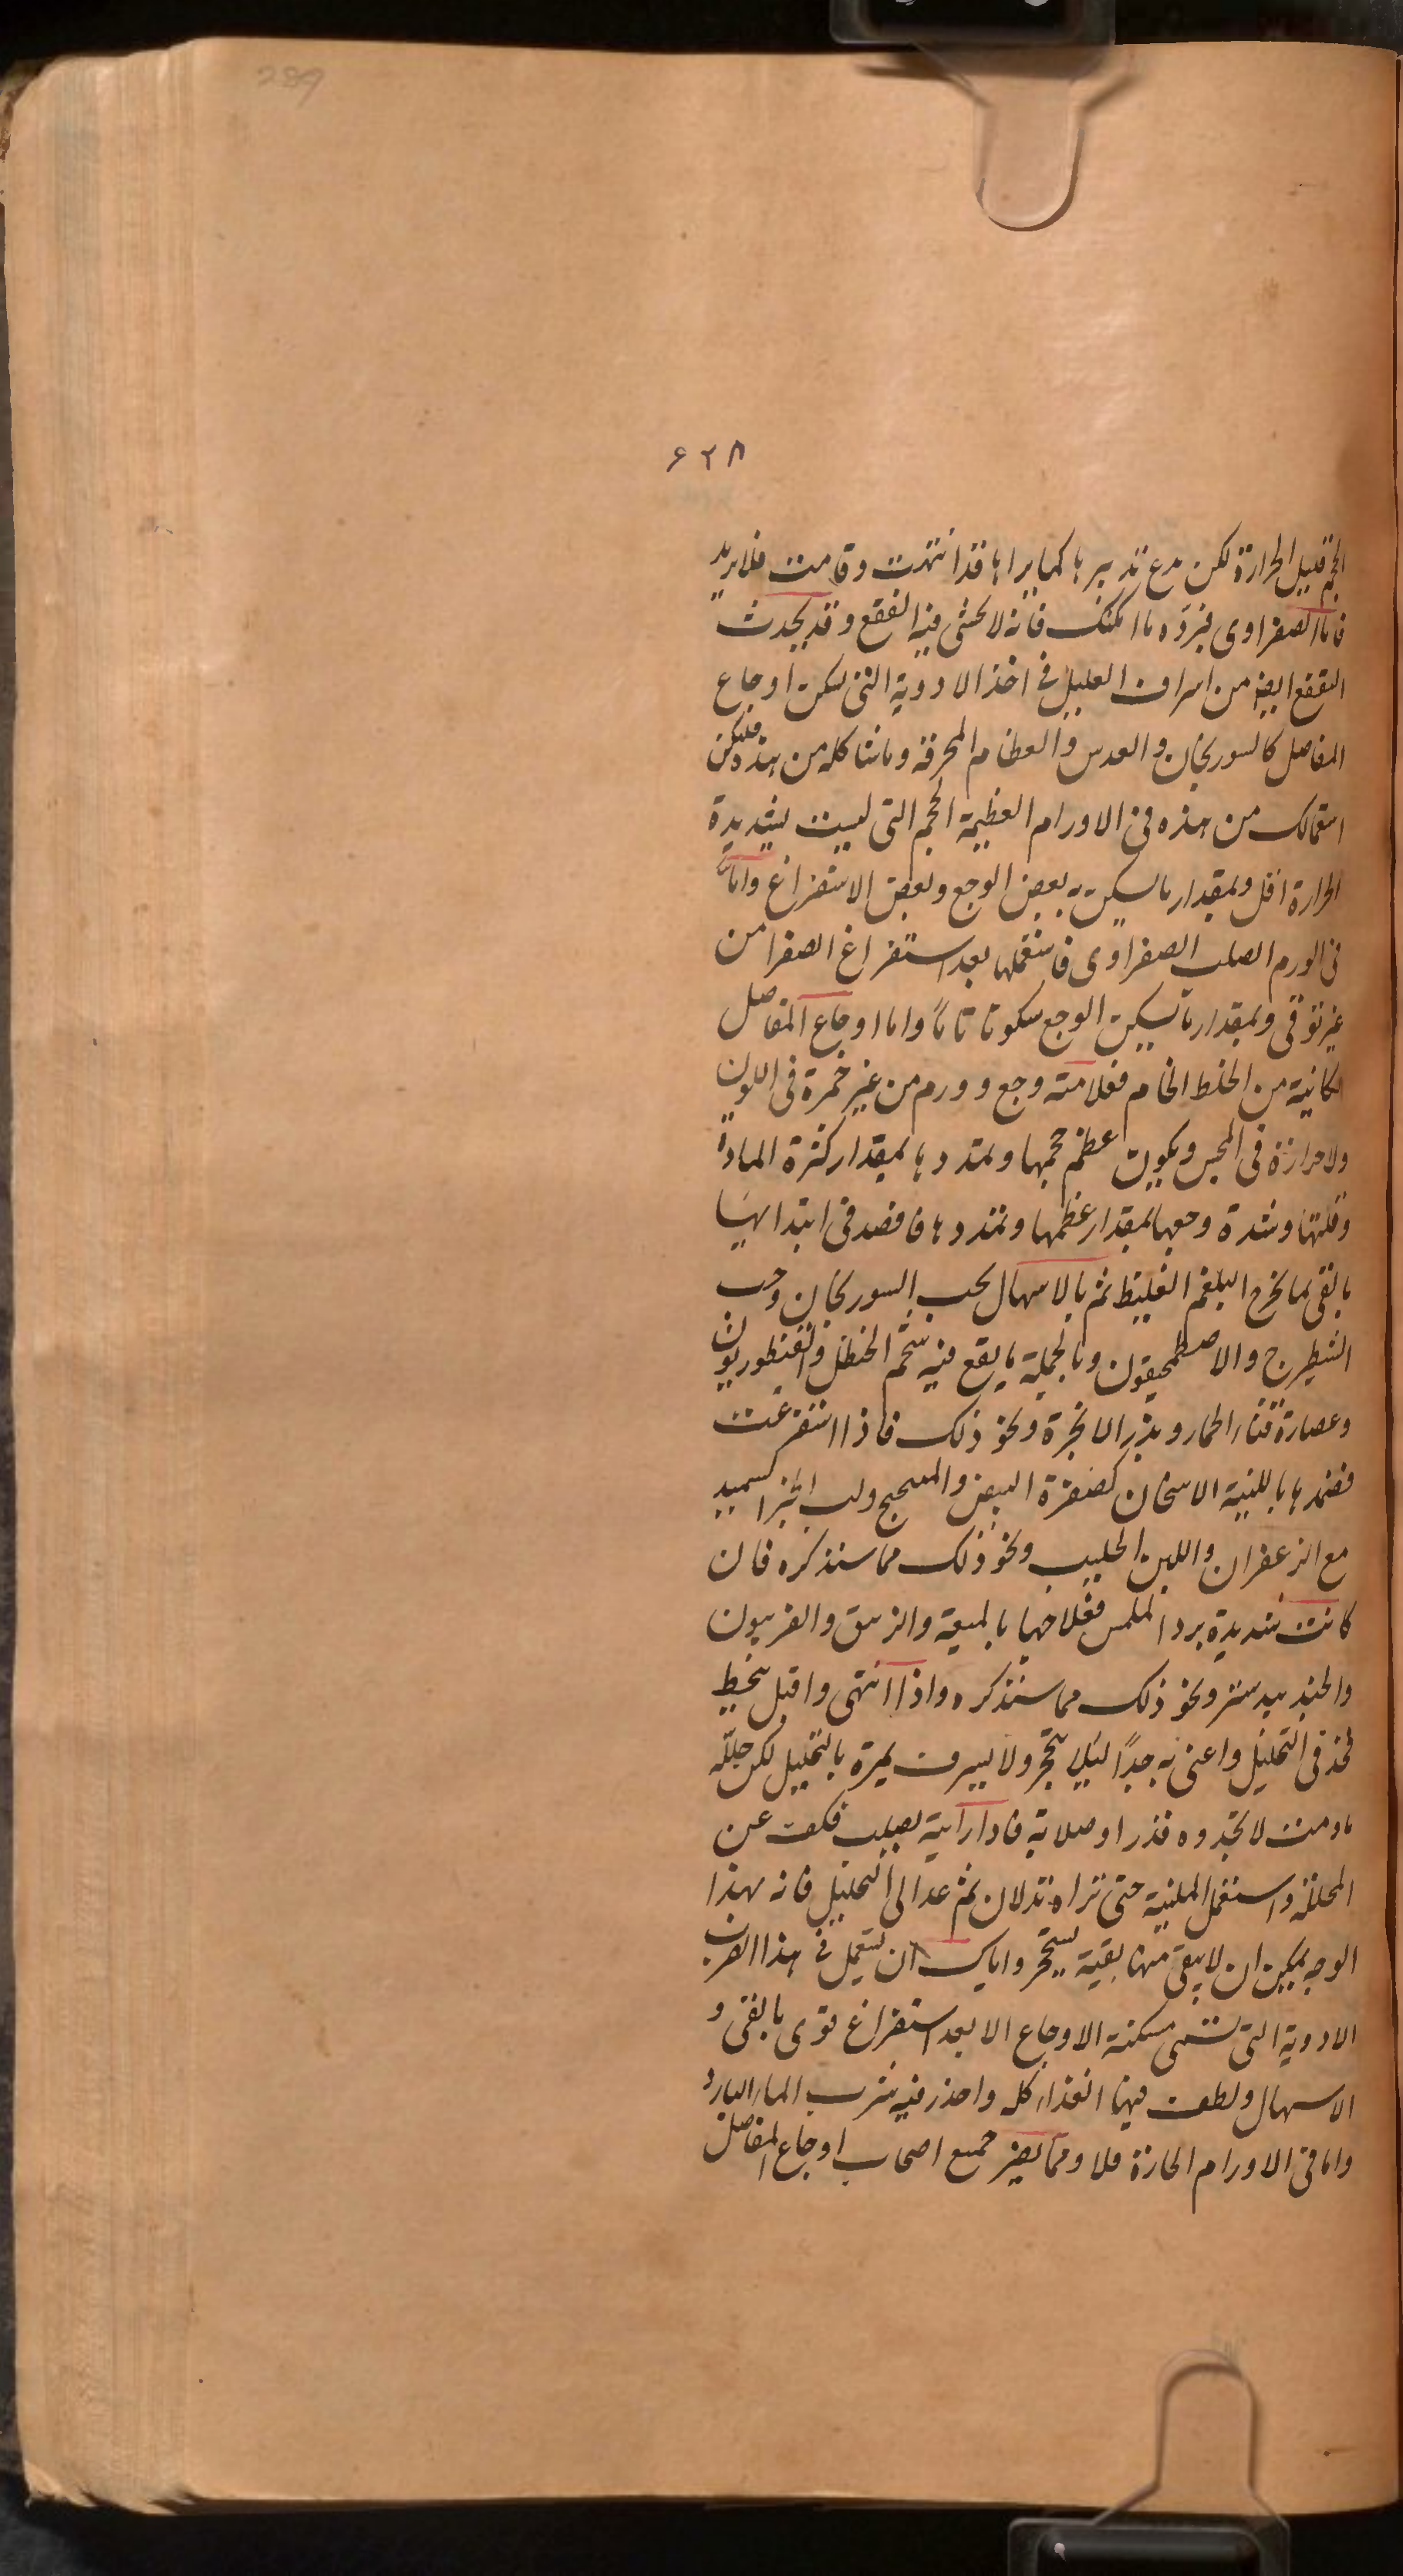 289
۶۲۸
الحجم قليل الحرارة لكن مدع تدبيرها كما يراها قد انتهت وقامت فلا يريد
فاما الصفراوى فبرّده ما امكنك فانه لا يخشى فيه الفقع وقد يحدث
التفقع ايضا من اسراف العليل فى اخذ الادوية التى تسكن اوجاع
المفاصل كالسورنجان والعدس والعظام المحرقة وما شاكله من هذه فليكن
استعمالك من هذه فى الاورام العظيمة الحجم التى ليست بشديدة
الحرارة اقل وبمقدار ما يسكن به بعض الوجع وبعض الاستفراغ واما
فى الورم الصلب الصفراوى فاستعملها بعد استفراغ الصفرا من
غير توقى وبمقدار ما يسكن الوجع سكونا تاما واما اوجاع المفاصل
الكانية من الخلط الخام فعلامته وجع وورم من غير حمرة فى اللون
ولا حرارة فى المجس ويكون عظم حجمها وتمددها بمقدار كثرة المادة
وقلتها وشدة وجعها بمقدار عظمها وتمددها فاقصد فى ابتدايها
بالقى بما يخرج البلغم الغليظ ثم بالاسهال بحب السورنجان وحب
الشيطرج والاصطمحيقون وبالجملة ما يقع فيه شحم الحنظل والقنطوريون
وعصارة قثاء الحمار وبزر الانجرة ونحو ذلك فاذا استفرغت
فضمدها بالملينة الاسخان كصفرة البيض والميبختج ولب الخبز السميد
مع الزعفران واللبن الحليب ونحو ذلك مما سنذكره فان
كانت شديدة برد الملمس فعلاجها بالميعة والزيبق والفربيون
والجندبيدستر ونحو ذلك مما سنذكره واذا انتهى واقبل ينحط
فخذ فى التحليل واعنى به جدًا ليلا يتحجر ولا يسرف بمرة بالتحليل لكن حلله
ما دمت لا تجد وه قذرا وصلابة فاذا رايته يصلب فكف عن
المحللة واستعمل الملينة حتى تراه قد لان ثم عد الى التحليل فانه بهذا
الوجه يمكن ان لا يبقى منها بقية يستحجر واياك ان تستعمل فى هذا الضرب
الادوية التى تسمى مسكنة الاوجاع الا بعد استفراغ قوى بالقى و
الاسهال ولطف فيها الغذاء كله واحذر فيه شرب الماء البارد
واما فى الاورام الحارة فلا ومما يضر جميع اصحاب اوجاع المفاصل